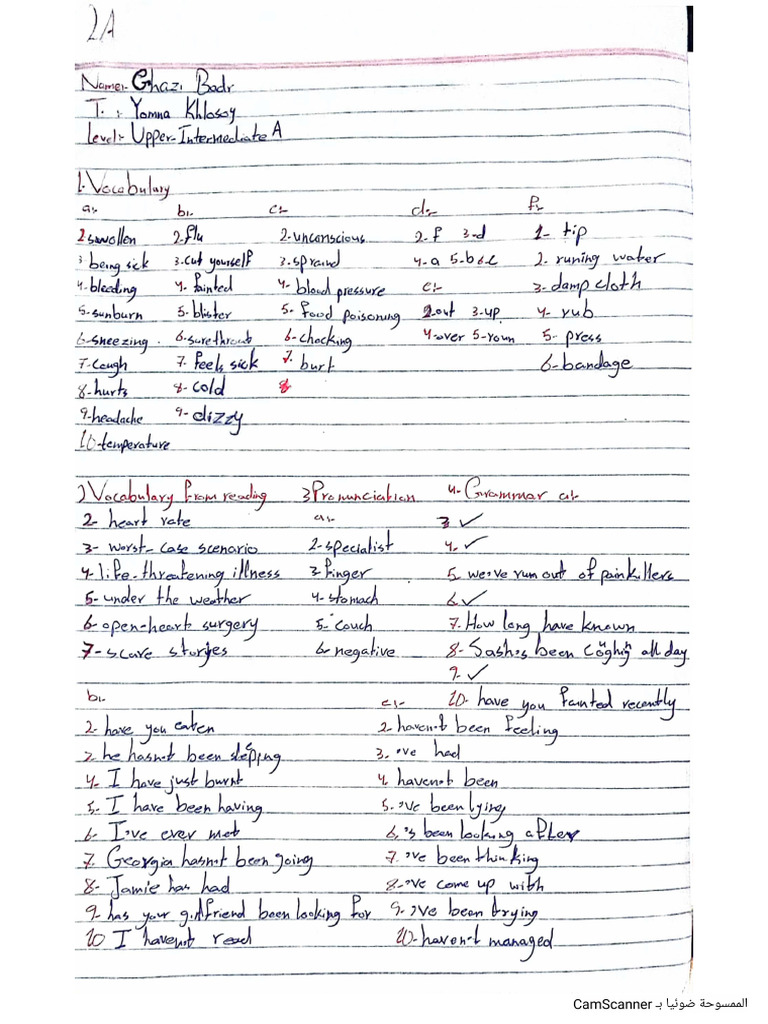 2A
Name:- Ghazi Badr
T. :- Yomna Khlosoy
Level:- Upper-Intermediate A
1. Vocabulary
a:- b:- c:- d:- f:-
2 swollen 2-flu 2-unconscious 2-f 3-d 1- tip
3 being sick 3-cut yourself 3-spraind 4-a 5-b 6-c 2- runing water
4-bleeding 4- fainted 4- blood pressure e:- 3-damp cloth
5-sunburn 5-blister 5- food poisoning 2out 3-up 4- rub
6-sneezing 6-surethroat 6-chocking 4-over 5-roun 5- press
7-Cough 7- feels sick 7- burt 6-bandage
8-hurts 8- cold 8
9-headache 9- dizzy
10-temperature
2) Vocabulary from reading 3 Pronunciation 4- Grammar a:-
2- heart rate a:- 3 ✓
3- worst-case scenario 2-specialist 4- ✓
4- life-threatening illness 3-finger 5- we've run out of painkillers
5- under the weather 4-stomach 6 ✓
6- open-heart surgery 5- couch 7- How long have known
7- scare stories 6-negative 8- Sash's been coughin all day
9- ✓
b:- c:- 10- have you fainted recently
2- have you eaten 2- haven't been feeling
3 he hasn't been sleping 3- 've had
4- I have just burnt 4 haven't been
5- I have been having 5- 've been lying
6- I've ever met 6, 's been looking after
7- Georgia hasn't been going 7- 've been thinking
8- Jamie has had 8- 've come up with
9- has your girlfriend been looking for 9- 've been trying
10 I haven't read 10- haven't managed
الممسوحة ضوئيا بـ CamScanner